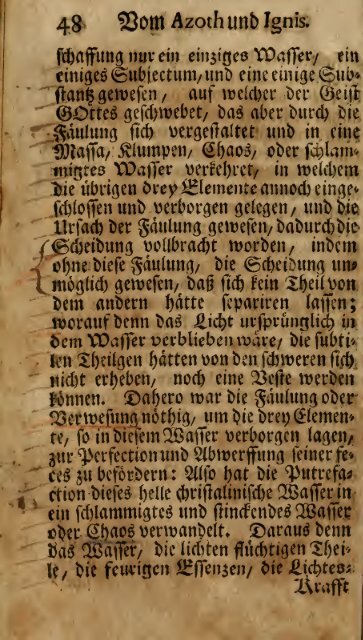 48 Vom Azoth und Ignis.
schaffung nur ein einziges Wasser, ein
einiges Subjectum, und eine einige Sub-
stantz gewesen, auf welcher der Geist
GOttes geschwebet, das aber durch die
Fäulung sich vergestaltet und in eine
Massa, Klumpen, Chaos, oder schlam-
migtes Wasser verkehret, in welchem
die übrigen drey Elemente annoch einge-
schlossen und verborgen gelegen, und die
Ursach der Fäulung gewesen, dadurch die
Scheidung vollbracht worden, indem
ohne diese Fäulung, die Scheidung un-
möglich gewesen, daß sich kein Theil von
dem andern hätte separiren lassen;
worauf denn das Licht ursprünglich in
dem Wasser verblieben wäre, die subti-
len Theilgen hätten von den schweren sich
nicht erheben, noch eine Veste werden
können. Dahero war die Fäulung oder
Verwesung nöthig, um die drey Elemen-
te, so in diesem Wasser verborgen lagen,
zur Perfection und Abwerffung seiner fe-
ces zu befördern: Also hat die Putrefa-
ction dieses helle christalinische Wasser in
ein schlammigtes und stinckendes Wasser
oder Chaos verwandelt. Daraus denn
das Wasser, die lichten flüchtigen Thei-
le, die feurigen Essenzen, die Lichtes-
Krafft